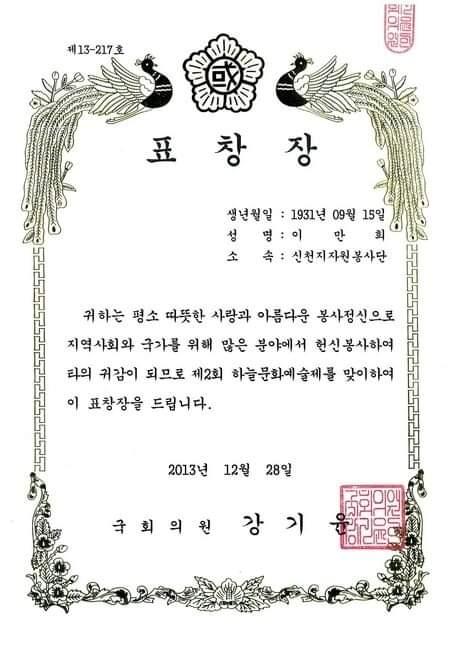 제13-217호
國
표 창 장
생년월일 : 1931년 09월 15일
성 명 : 이 만 희
소 속 : 신천지자원봉사단
귀하는 평소 따뜻한 사랑과 아름다운 봉사정신으로
지역사회와 국가를 위해 많은 분야에서 헌신봉사하여
타의 귀감이 되므로 제2회 하늘문화예술제를 맞이하여
이 표창장을 드립니다.
2013년 12월 28일
국 회 의 원 강 기 윤